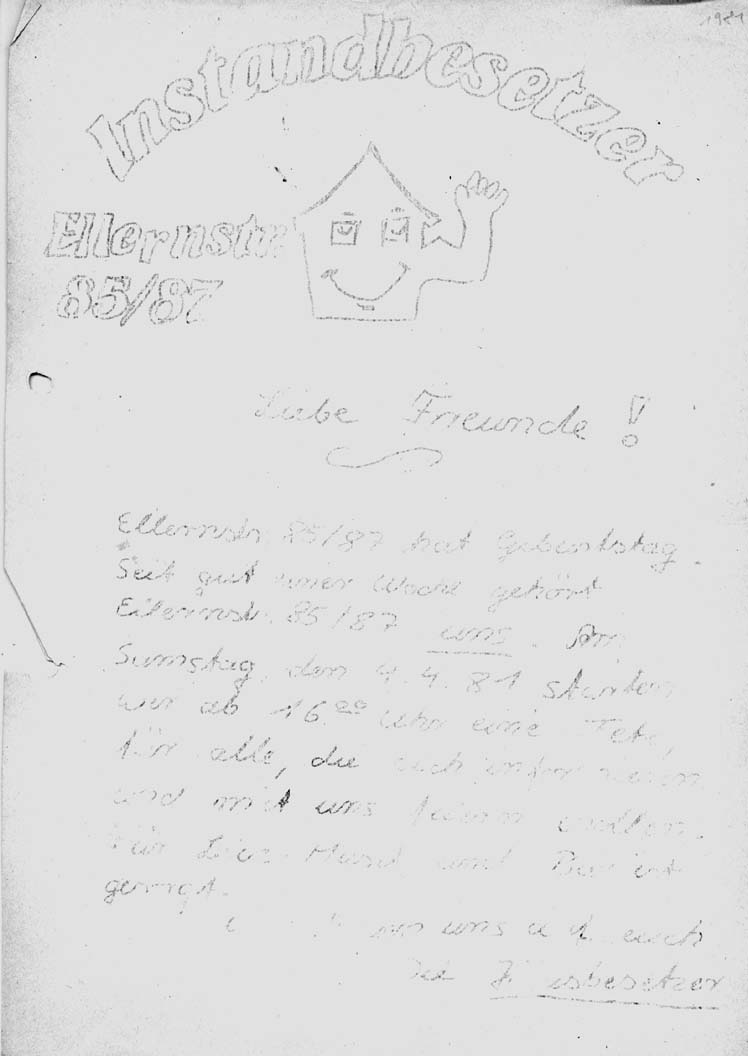 1981
Instandbesetzer
Ellernstr.
85/87
Liebe Freunde!
Ellernstr. 85/87 hat Geburtstag.
Seit gut einer Woche gehört
Ellernstr. 85/87 uns. Am
Samstag, den 4.4.81 starten
wir ab 16.00 Uhr eine Fete,
für alle, die sich informieren
und mit uns feiern wollen.
Für Live-Musik und Bier ist
gesorgt.
uns auf euch
Die Hausbesetzer